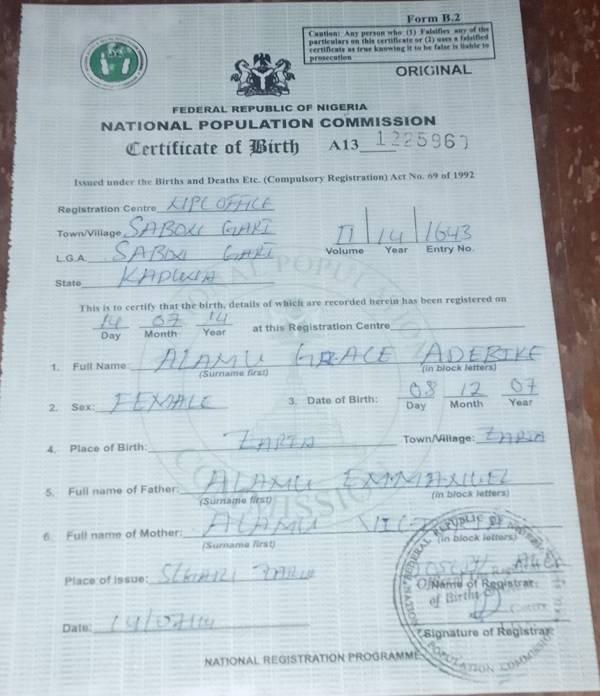 Form B.2
Caution: Any person who (1) Falsifies any of the
particulars on this certificate or (2) uses a falsified
certificate as true knowing it to be false is liable to
prosecution
ORIGINAL
FEDERAL REPUBLIC OF NIGERIA
NATIONAL POPULATION COMMISSION
Certificate of Birth A13 1225967
Issued under the Births and Deaths Etc. (Compulsory Registration) Act No. 69 of 1992
Registration Centre OFFICE
Town/Village SABON GARI
L.G.A. SABON GARI
II 14 1643
Volume Year Entry No.
State KADUNA
This is to certify that the birth, details of which are recorded herein has been registered on
14 07 14 at this Registration Centre
Day Month Year
1. Full Name: ALAMU GRACE ADEBIKE
(Surname first) (in block letters)
2. Sex: FEMALE 3. Date of Birth: 08 12 07
Day Month Year
4. Place of Birth: ZARIA Town/Village: ZARIA
5. Full name of Father: ALAMU EMMANUEL
(Surname first) (in block letters)
6. Full name of Mother: ALAMU
(Surname first) (in block letters)
Place of issue:
Name of Registrar
of Births
Date: 14/07/14
Signature of Registrar
NATIONAL REGISTRATION PROGRAMME